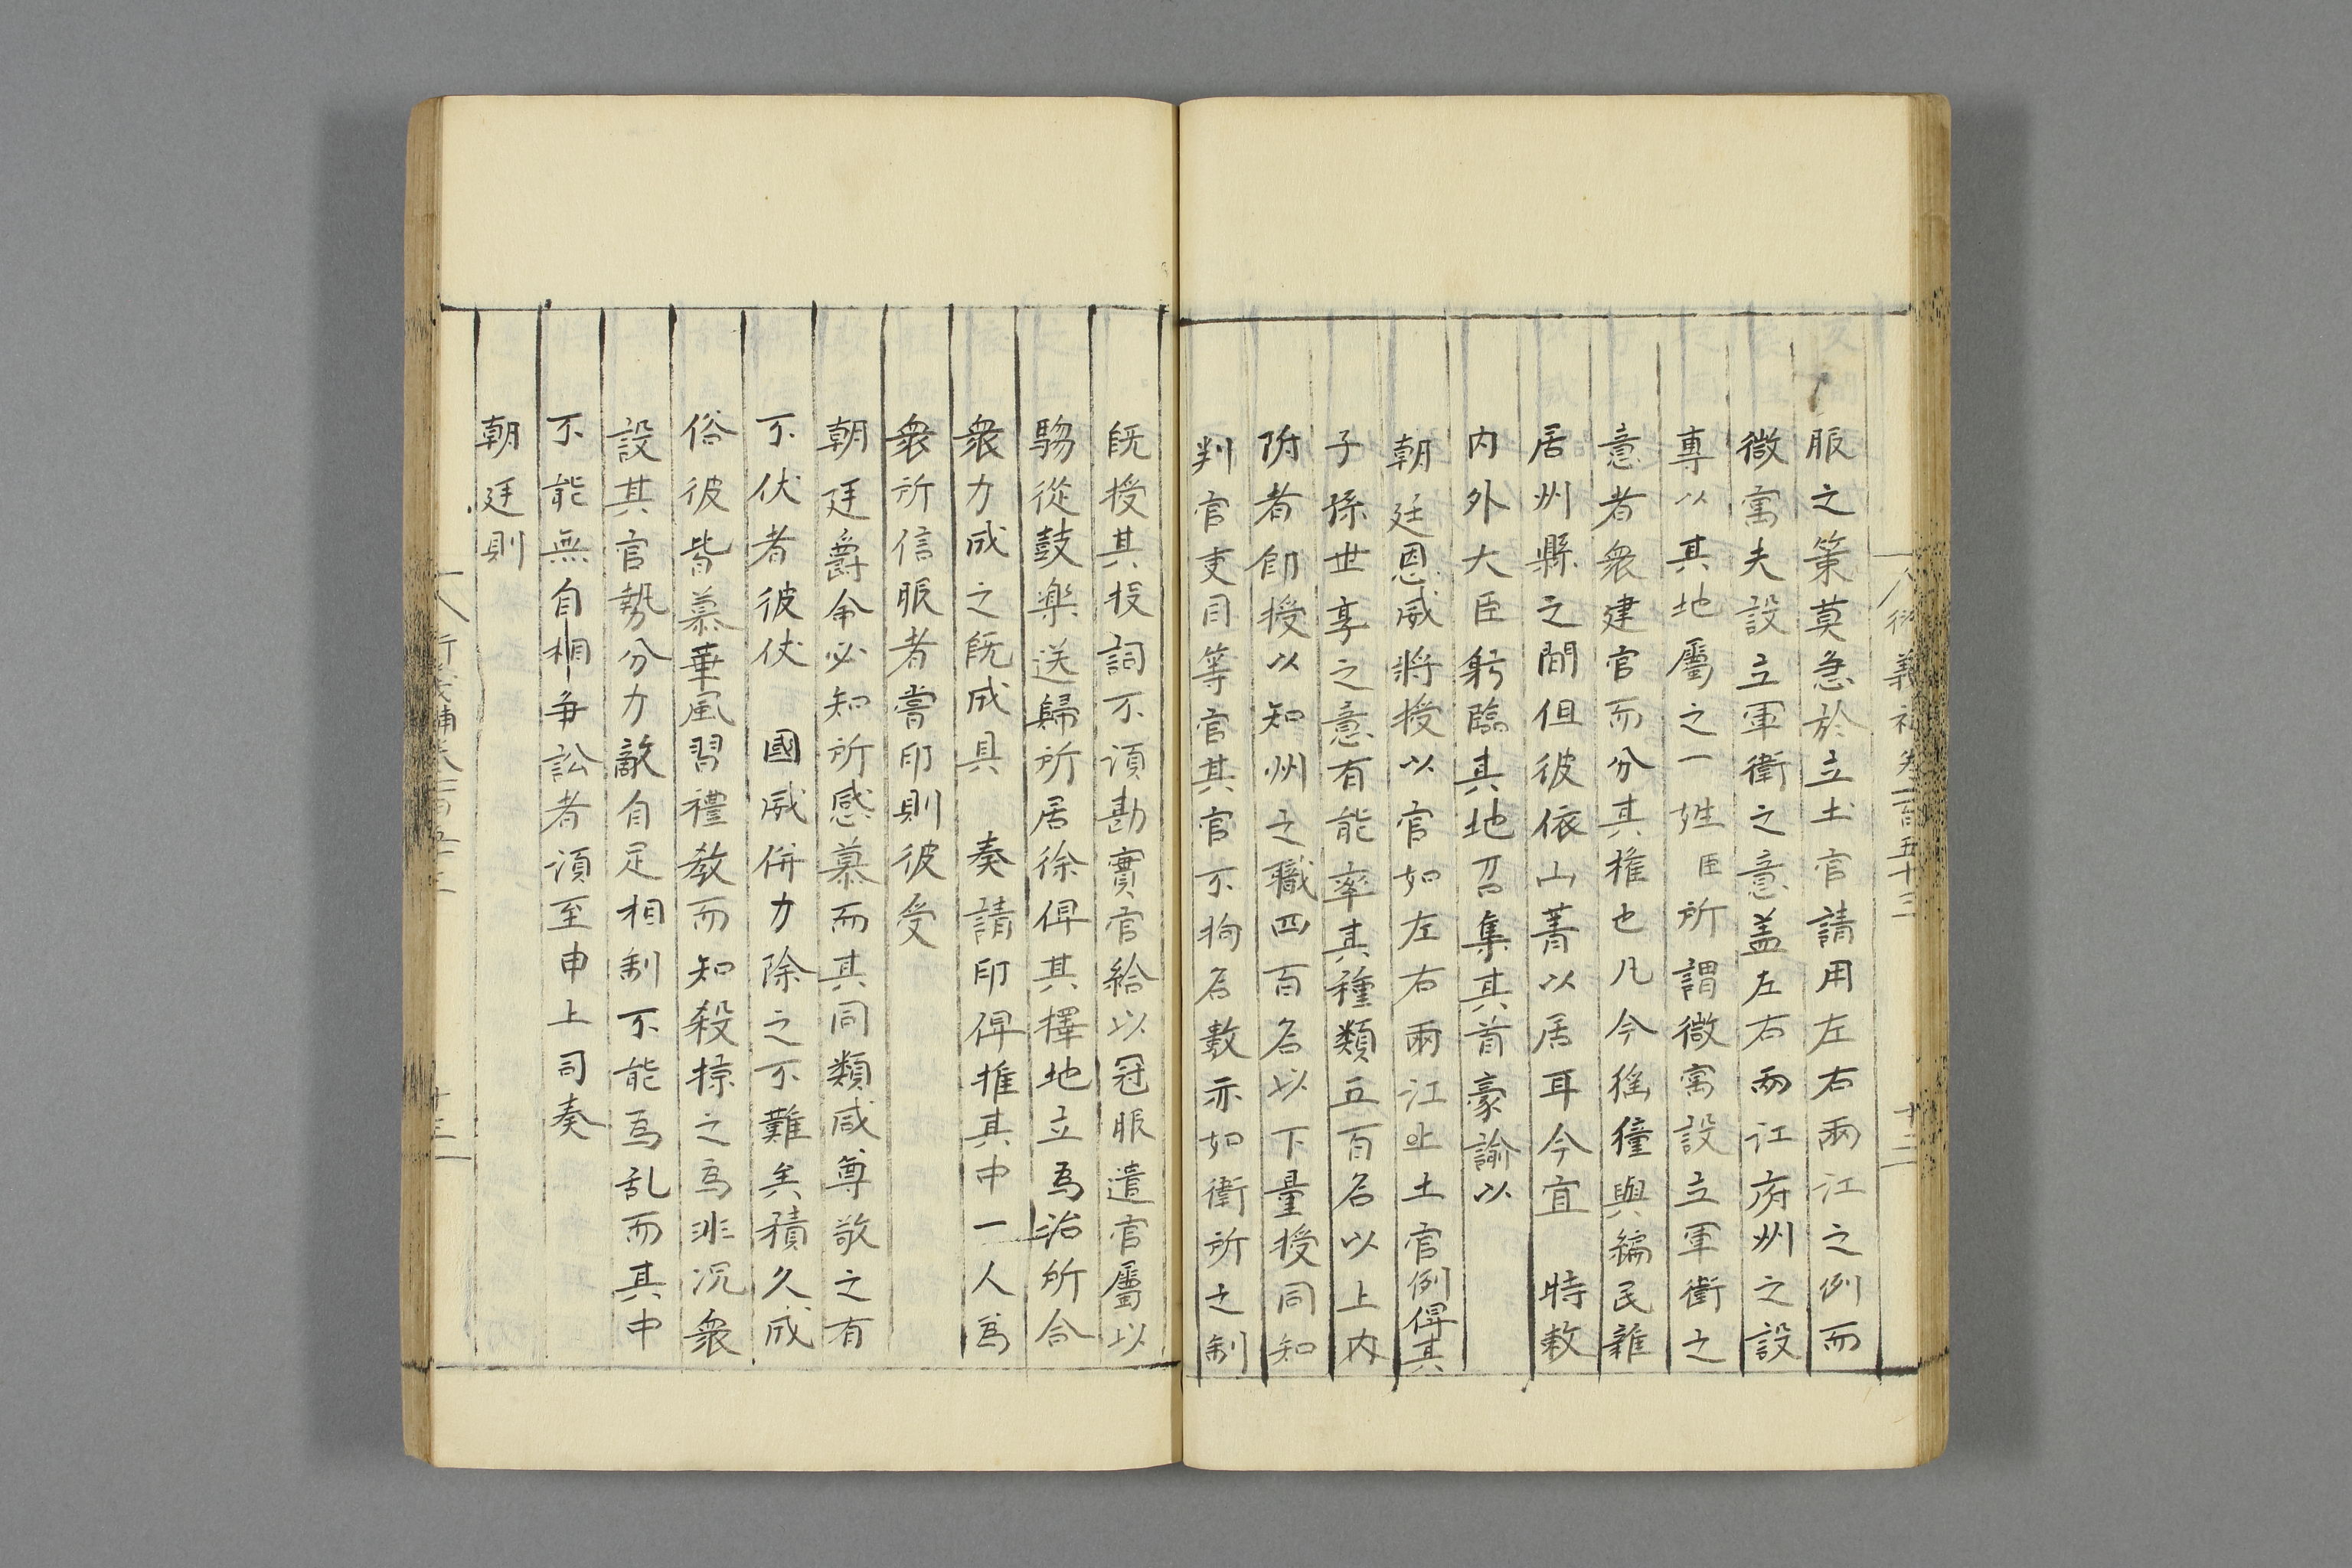 服之策莫急於立土官請用左右兩江之例而
微寓夫設立軍衛之意盖左右兩江府州之設
專以其地屬之一姓臣所謂微寓設立軍衛之
意者衆建官而分其權也凡今猺獞與編民雜
居州縣之間但彼依山菁以居耳今宜 時敕
内外大臣躬臨其地召集其首豪諭以
朝廷恩威將授以官如左右兩江止土官例俾其
子孫世享之意有能率其種類五百名以上内
附者即授以知州之職四百名以下量授同知
判官吏目等官其官不拘名数亦如衛所之制
既授其投詞不湏勘實官給以冠服遣官屬以
騶從鼓楽送歸所居徐俾其擇地立為治所合
衆力成之既成具 奏請印俾推其中一人為
衆所信服者嘗印則彼受
朝廷爵命必知所感慕而其同類咸尊敬之有
不伏者彼仗 國威併力除之不難矣積久成
俗彼皆慕華風習禮教而知殺掠之為非況衆
設其官勢分力敵自足相制不能為乱而其中
不能無自相争訟者湏至申上司奏
朝廷則